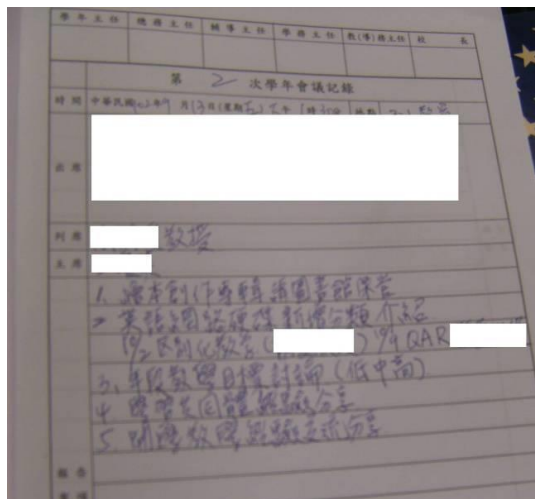 學年主任 總務主任 輔導主任 學務主任 教(導)務主任 校長
第 2 次學年會議記錄
時間 中華民國102年9月13日(星期五)下午1時30分 地點
出席
列席 教授
主席
1. 繪本創作專輯 請圖書館保管
2. 英語網路硬碟新增分類介紹
10/2 差別化教學( ) 19/9 QAR
3. 年段教學目標討論(低中高)
4. 學習共同體經驗分享
5. 閱讀教學經驗交流分享
報告
事項